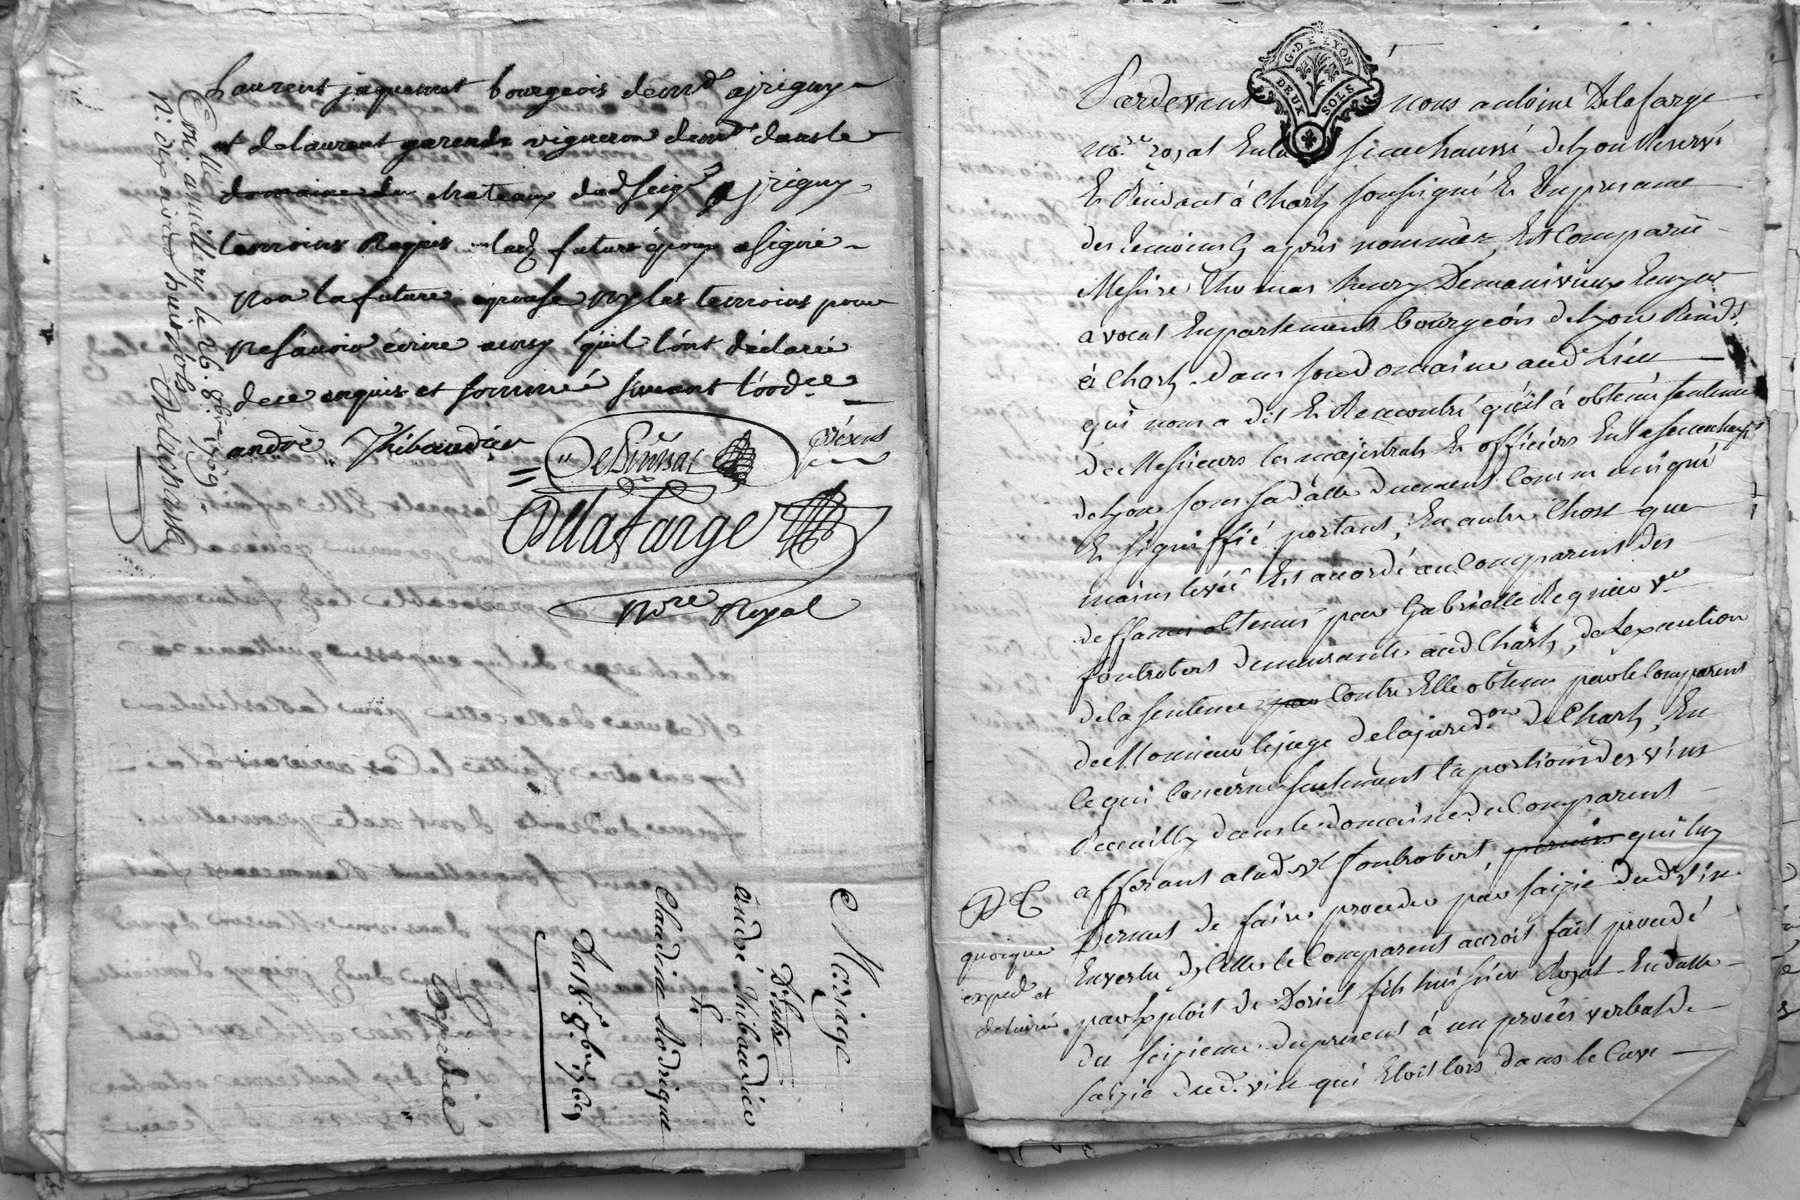 Laurent jaquemet bourgeois demt a jrigny
et de laurent garende vigneron demt dans le
domaine du chateaux dud seigr a jrigny
temoins Requis led futur époux a signé
non la future épouse ny les temoins pour
ne sçavoir écrire ainsy qu'il l'ont déclaré
de ce enquis et sommé suivant l'ordce
andré Thibaudier
DeLafarge
Nore Royal
le 26. 8bre 1769
Mariage
D'entre
André thibaudier
Et
Claudine
Du 18e 8bre 1769
Expedié
G. DE LYON
DEUX SOLS
Pardevant nous antoine Delafarge
nore royal en la senechaussé de Lyon
Residant à Charly soussigné En presence
des temoins Cy après nommés Est Comparu
Messire Thomas henry
avocat En parlement bourgeois de Lyon Residt
à Charly dans son Domaine aud Lieu
qui nous a dit Et Remontré qu'il à obtenu sentence
de Messieurs les majistrats Et officiers En la senechaussé
de Lyon sous sa datte duement Communiqué
Et signiffié portant, En autre Chose que
main levée Est acordé au Comparent des
deffances obtenus par Gabrielle Regnier ve
fontrobert demeurante aud Charly, de Lexecution
de la sentence par Contre Elle obtenu par le Comparent
de Monsieur le juge de la juridon de Charly, En
Ce qui Concerne seulement la portion des vins
Recueilly dans le domaine du Comparent
afferant a lad ve fontrobert, permis qui luy
permet de faire proceder par saizie dud vin
En vertu de celle le Comparent auroit fait procedé
par Exploit de Doriel fils huissier Royal En datte
du seizieme du present à un procés verbal de
saizie dud. vin qui Etoit lors dans le Cuve
quoique
exped et